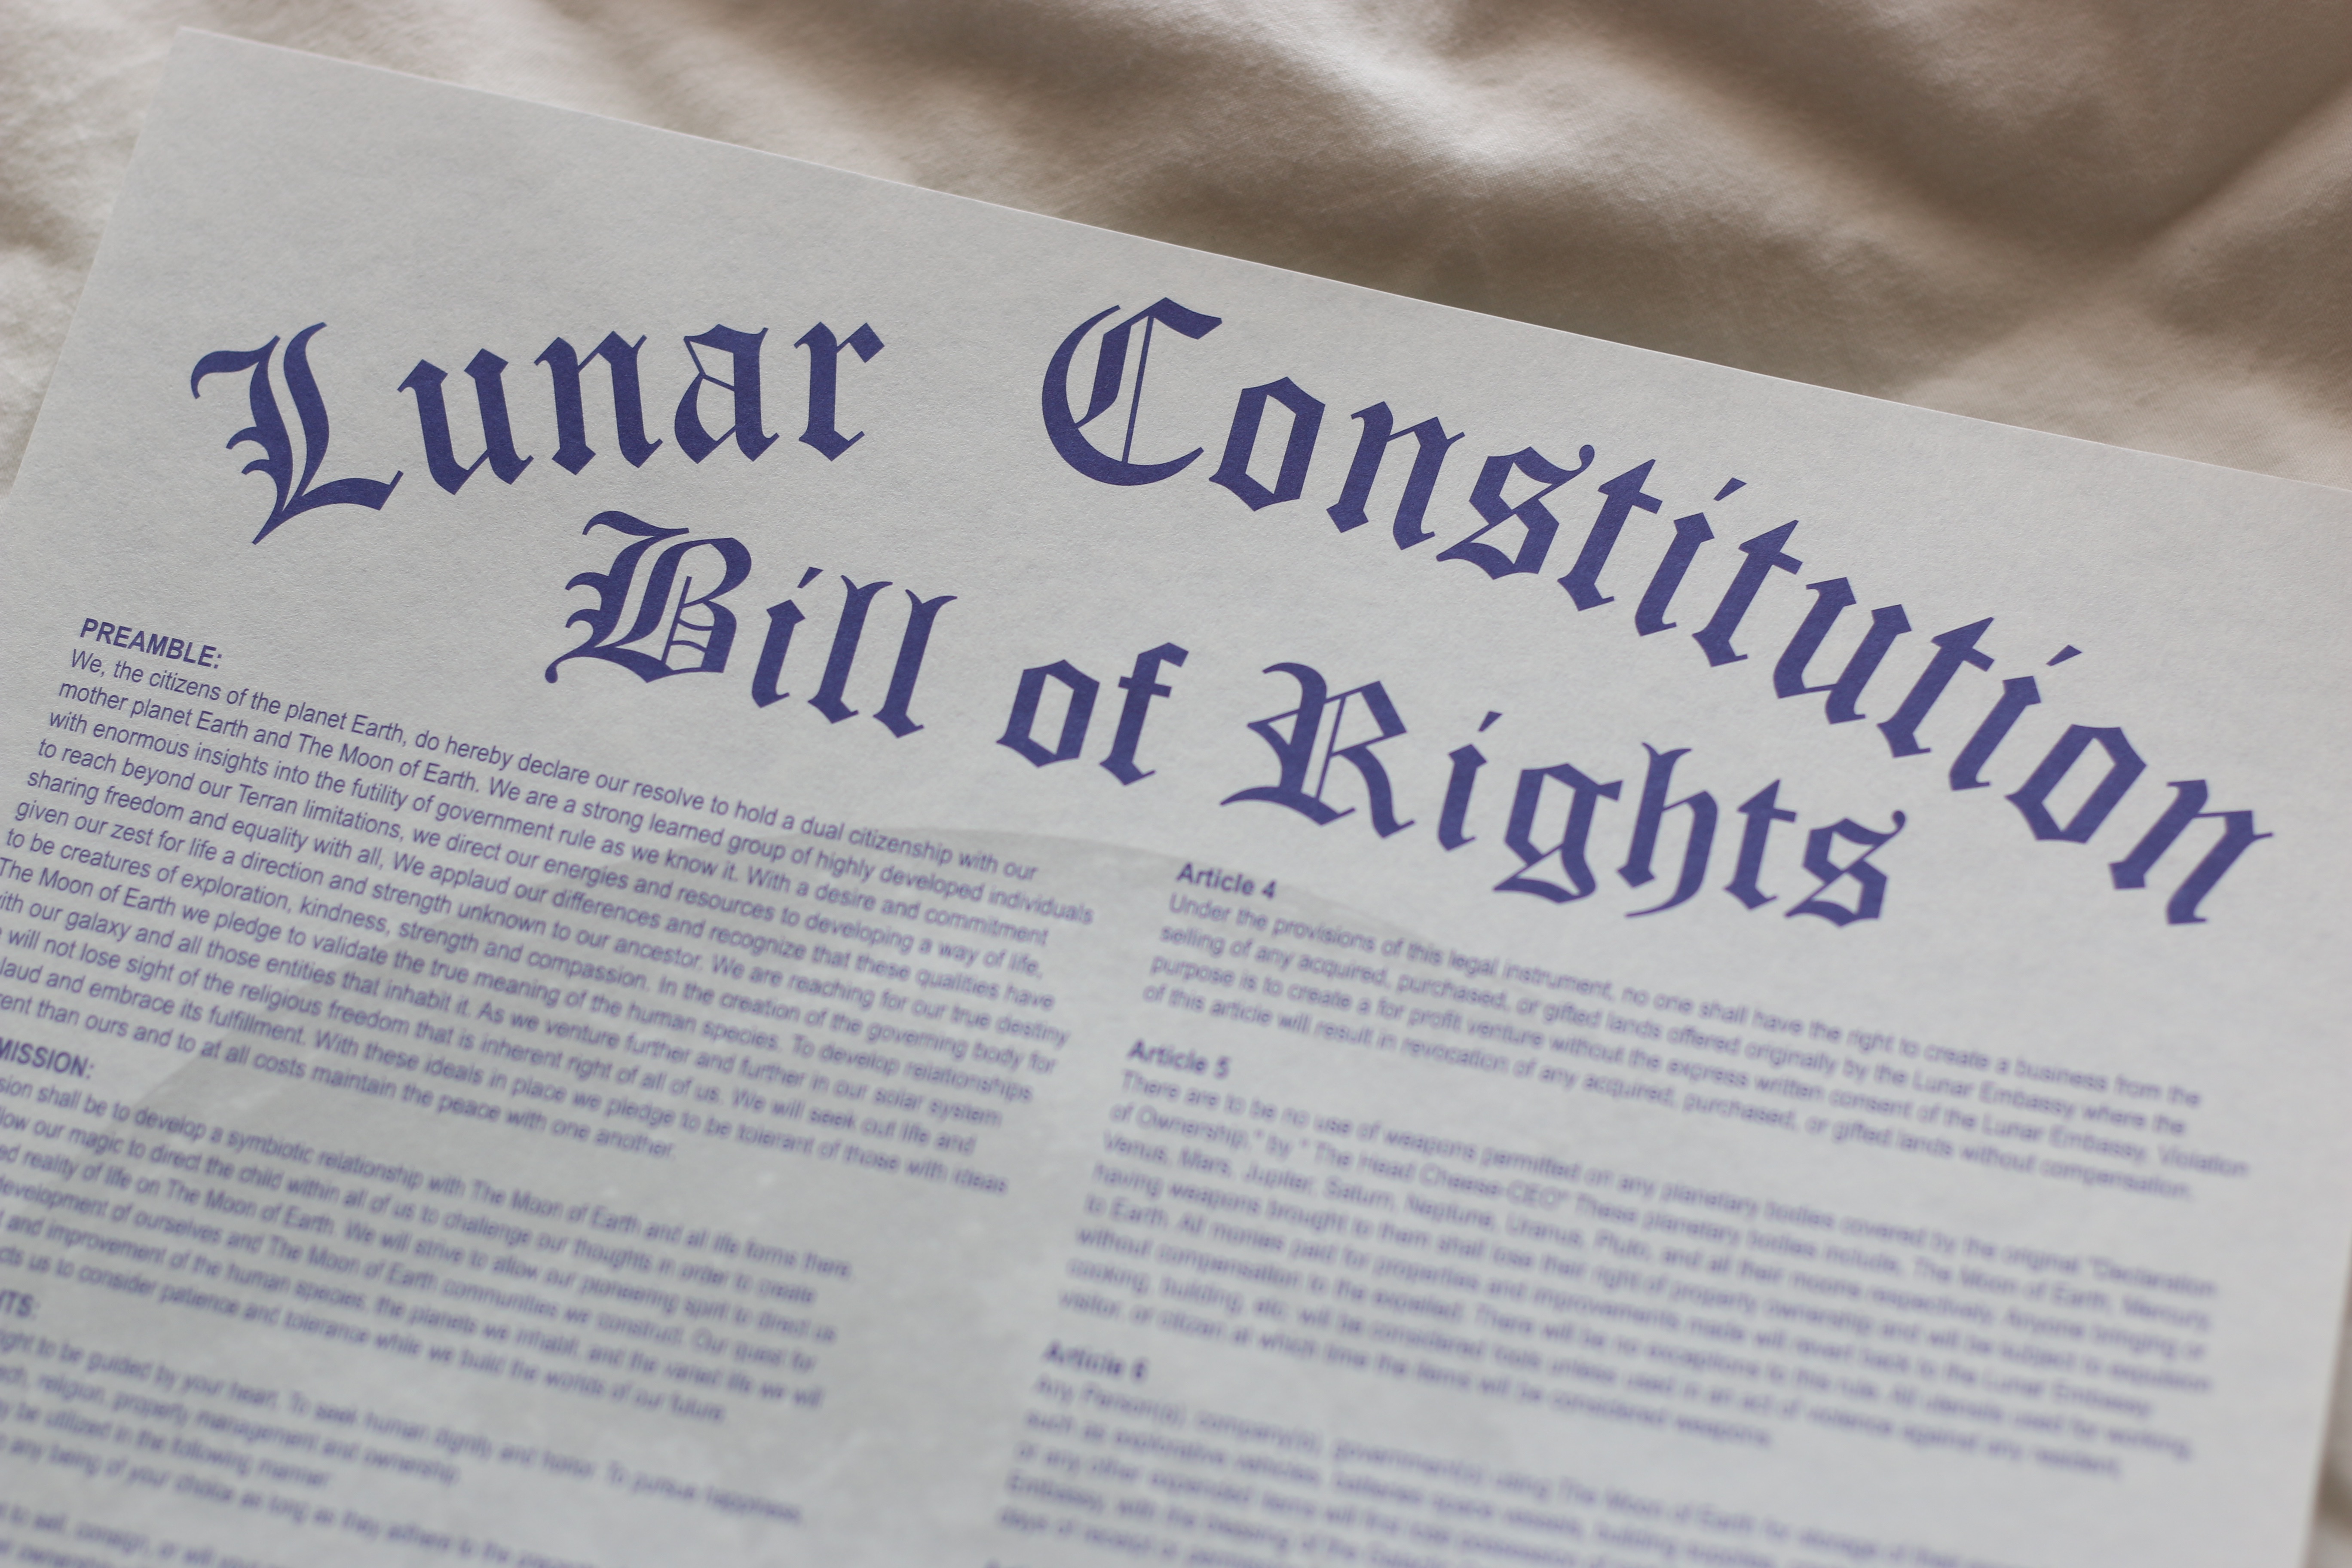 Lunar Constitution
Bill of Rights
PREAMBLE:
We, the citizens of the planet Earth, do hereby declare our resolve to hold a dual citizenship with our
mother planet Earth and The Moon of Earth. We are a strong learned group of highly developed individuals
with enormous insights into the futility of government rule as we know it. With a desire and commitment
to reach beyond our Terran limitations, we direct our energies and resources to developing a way of life,
sharing freedom and equality with all, We applaud our differences and recognize that these qualities have
given our zest for life a direction and strength unknown to our ancestor. We are reaching for our true destiny
to be creatures of exploration, kindness, strength and compassion. In the creation of the governing body for
The Moon of Earth we pledge to validate the true meaning of the human species. To develop relationships
with our galaxy and all those entities that inhabit it. As we venture further and further in our solar system
will not lose sight of the religious freedom that is inherent right of all of us. We will seek out life and
laud and embrace its fulfillment. With these ideals in place we pledge to be tolerant of those with ideas
rent than ours and to at all costs maintain the peace with one another.
MISSION:
sion shall be to develop a symbiotic relationship with The Moon of Earth and all life forms there.
low our magic to direct the child within all of us to challenge our thoughts in order to create
ed reality of life on The Moon of Earth. We will strive to allow our pioneering spirit to direct us
development of ourselves and The Moon of Earth communities we construct. Our quest for
t and improvement of the human species, the planets we inhabit, and the varied life we will
cts us to consider patience and tolerance while we build the worlds of our future.
HTS:
ight to be guided by your heart. To seek human dignity and honor. To pursue happiness.
ech, religion, property management and ownership.
y be utilized in the following manner:
any being of your choice as long as they adhere to the
to sell, consign, or will your
Article 4
Under the provisions of this legal instrument, no one shall have the right to create a business from the
selling of any acquired, purchased, or gifted lands offered originally by the Lunar Embassy where the
purpose is to create a for profit venture without the express written consent of the Lunar Embassy. Violation
of this article will result in revocation of any acquired, purchased, or gifted lands without compensation.
Article 5
There are to be no use of weapons permitted on any planetary bodies covered by the original "Declaration
of Ownership," by " The Head Cheese-CEO" These planetary bodies include, The Moon of Earth, Mercury,
Venus, Mars, Jupiter, Saturn, Neptune, Uranus, Pluto, and all their moons respectively. Anyone bringing or
having weapons brought to them shall lose their right of property ownership and will be subject to expulsion
to Earth. All monies paid for properties and improvements made will revert back to the Lunar Embassy
without compensation to the expelled. There will be no exceptions to this rule. All utensils used for working,
cooking, building, etc. will be considered tools unless used in an act of violence against any resident,
visitor, or citizen at which time the items will be considered weapons.
Article 6
Any Person(s), company(s), government(s) using The Moon of Earth for storage of
such as explorative vehicles, batteries space vessels, building supplies,
or any other expended items will
Embassy, with the blessing of the
days of receipt